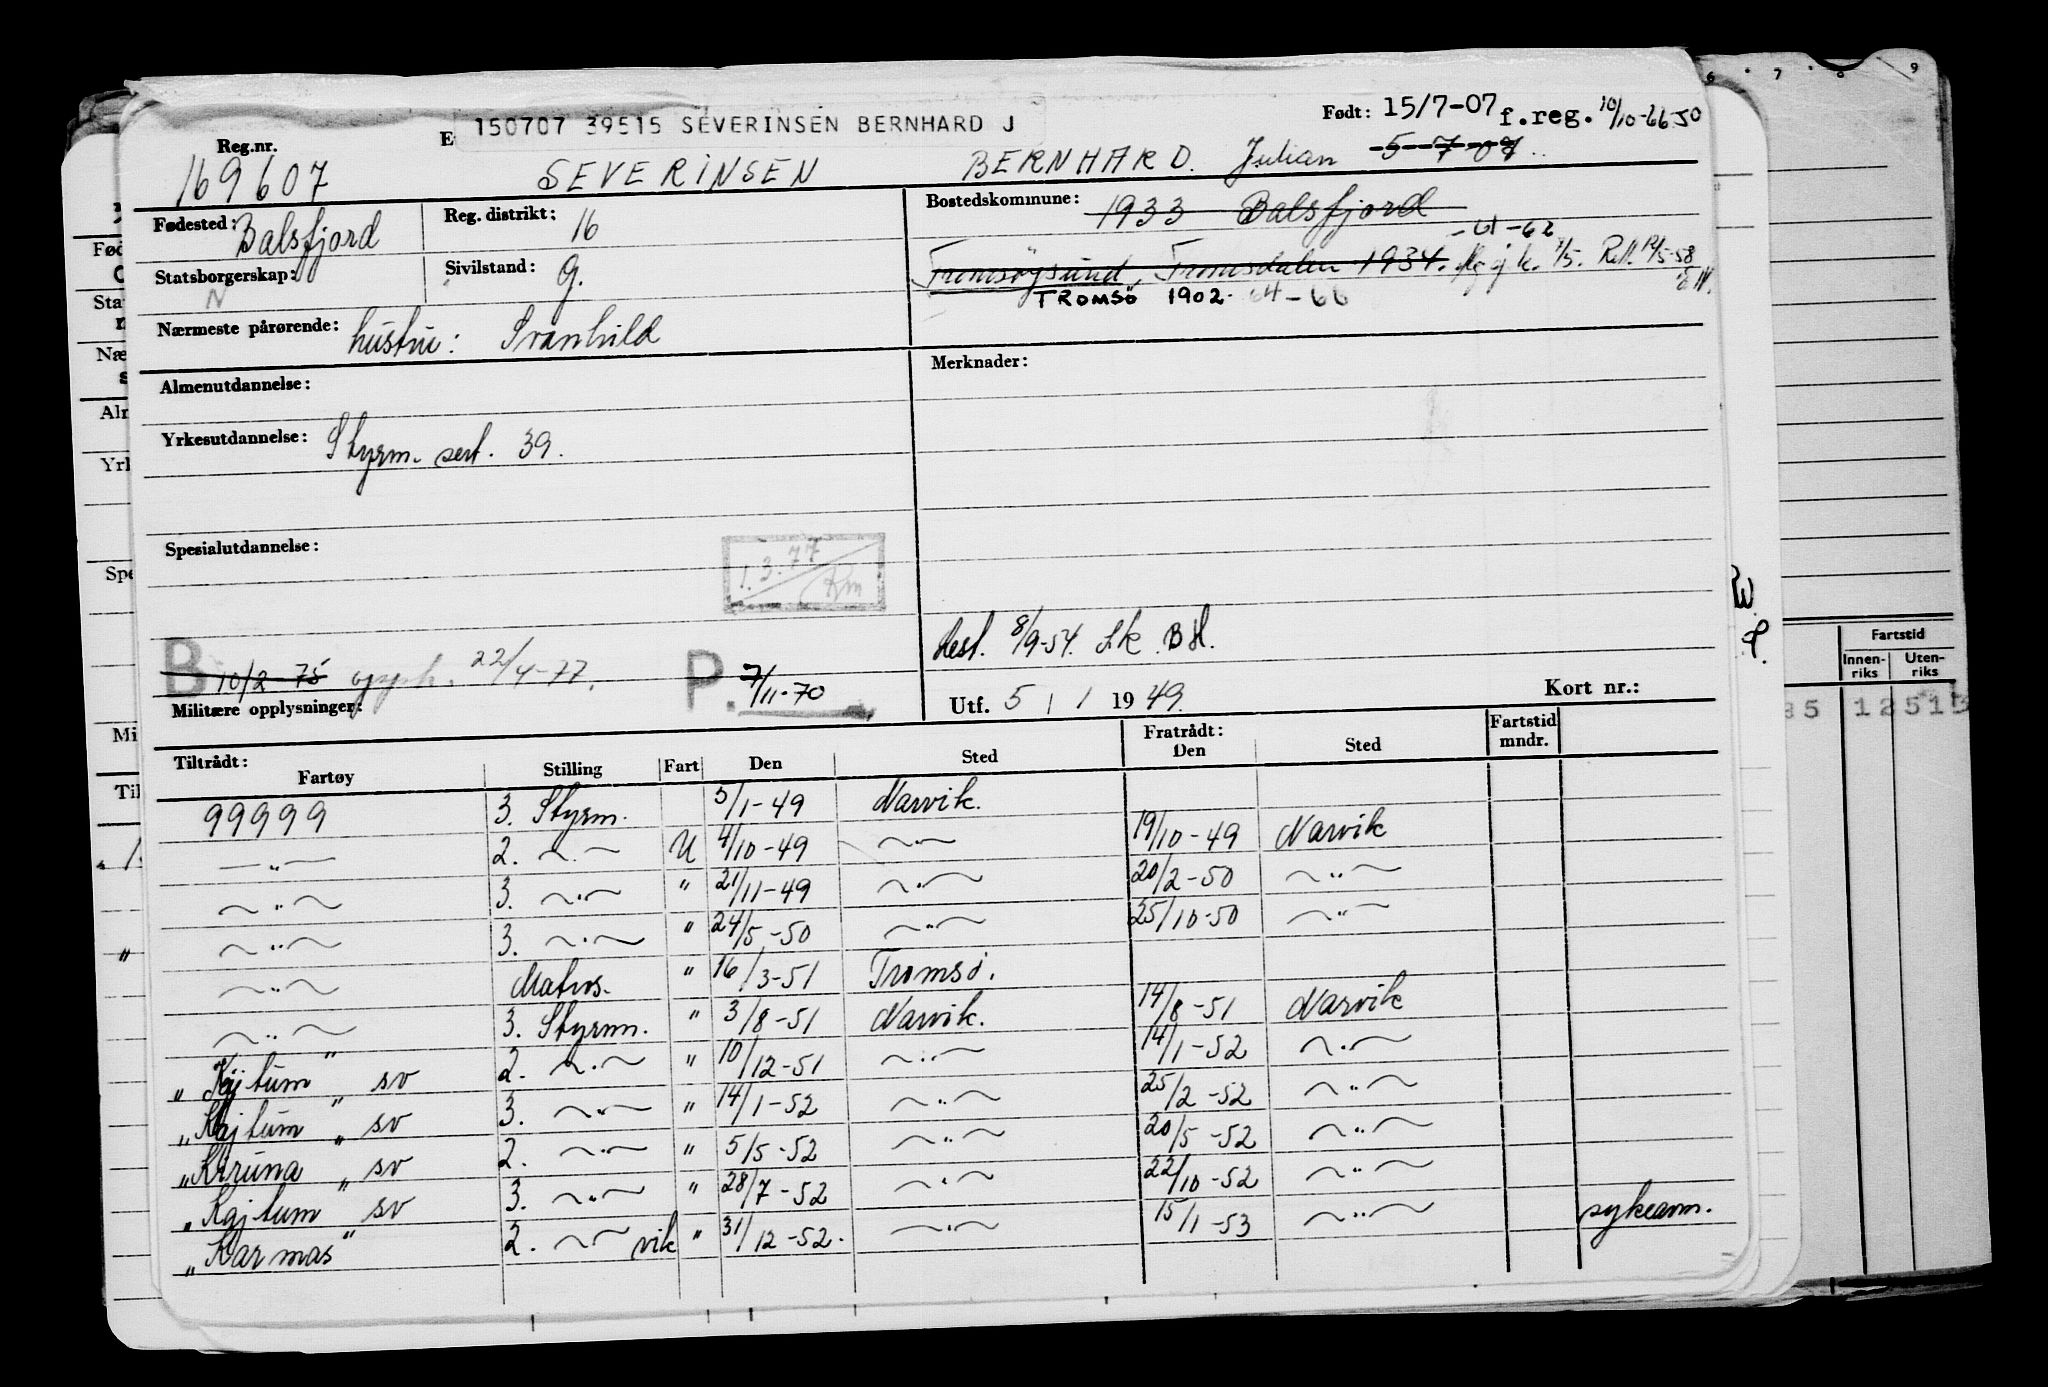 150707 39515 SEVERINSEN BERNHARD J
Født: 15/7-07 f.reg. 10/10-66 SO
Reg.nr. E
169607 SEVERINSEN BERNHARD. Julian 5-7-07
Fødested: Balsfjord Reg. distrikt: 16 Bostedskommune: 1933 Balsfjord
-61-62
Statsborgerskap: N Sivilstand: g. Tromsøysund, Tromsdalen 1934. 12/5-58
TROMSØ 1902. 64-66
Nærmeste pårørende: hustru: Svanhild
Almenutdannelse: Merknader:
Yrkesutdannelse: Styrm. sert. 39.
Spesialutdannelse:
1.3.77
Rm
dest. 8/9-54. Lk. BH.
B 10/2-75 opph. 22/4-77. P. 7/11-70
Militære opplysninger: Utf. 5 / 1 1949. Kort nr.:
Tiltrådt: Fratrådt: Fartstid mndr.
Fartøy Stilling Fart Den Sted Den Sted
99999 3. Styrm. 5/1-49 Narvik.
—„— 2. ~.~ U 4/10-49 ~.~ 19/10-49 Narvik
~„~ 3. ~.~ " 21/11-49 ~.~ 20/2-50 ~„~
~„~ 3. ~.~ " 24/5-50 ~„~ 25/10-50 ~„~
~„~ Matros. " 16/3-51 Tromsø.
~„~ 3. Styrm. " 3/8-51 Narvik. 14/8-51 Narvik
„Kajtum" sv 2. ~.~ " 10/12-51 ~„~ 14/1-52 ~.~
„Kajtum" sv 3. ~„~ " 14/1-52 ~„~ 25/2-52 ~„~
„Kiruna" sv 2. ~.~ " 5/5-52 ~„~ 20/5-52 ~„~
„Kajtum" sv 3. ~„~ " 28/7-52 ~.~ 22/10-52 ~„~
„Karmas" 2. ~~ vik " 31/12-52. ~.~ 15/1-53 ~„~ sykeavm.
Fartstid
Innen-riks Uten-riks